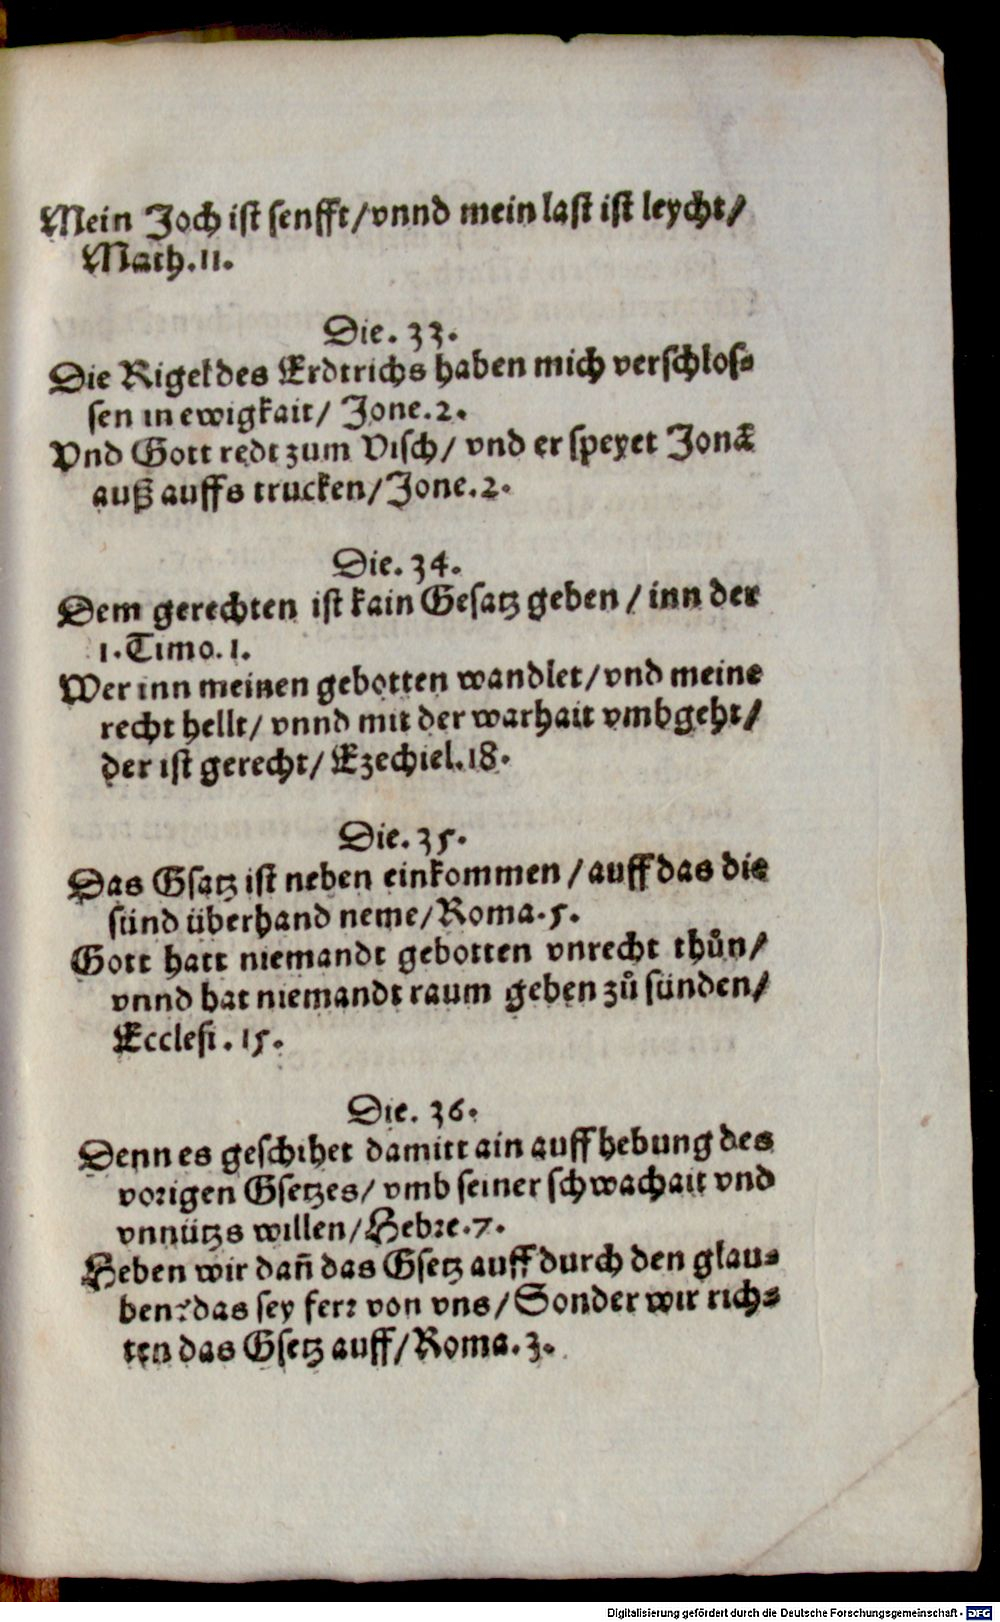 Mein Joch ist senfft/vnnd mein last ist leycht/
Math.11.
Die. 33.
Die Rigel des Erdtrichs haben mich verschlos⸗
sen in ewigkait/ Jone.2.
Vnd Gott redt zum Visch/ vnd er speyet Jonā
auß auffs trucken/Jone.2.
Die. 34.
Dem gerechten ist kain Gesatz geben / inn der
1.Timo.1.
Wer inn meinen gebotten wandlet/vnd meine
recht hellt/ vnnd mit der warhait vmbgeht/
der ist gerecht/ Ezechiel.18.
Die. 35.
Das Gsatz ist neben einkommen /auff das die
sünd überhand neme/Roma.5.
Gott hatt niemandt gebotten vnrecht thůn/
vnnd hat niemandt raum geben zů sünden/
Ecclesi. 15.
Die. 36.
Denn es geschihet damitt ain auffhebung des
vorigen Gsetzes/ vmb seiner schwachait vnd
vnnützs willen/Hebre.7.
Heben wir dañ das Gsetz auff durch den glau⸗
ben?das sey ferr von vns/Sonder wir rich⸗
ten das Gsetz auff/Roma.3.
Digitalisierung gefördert durch die Deutsche Forschungsgemeinschaft - DFG